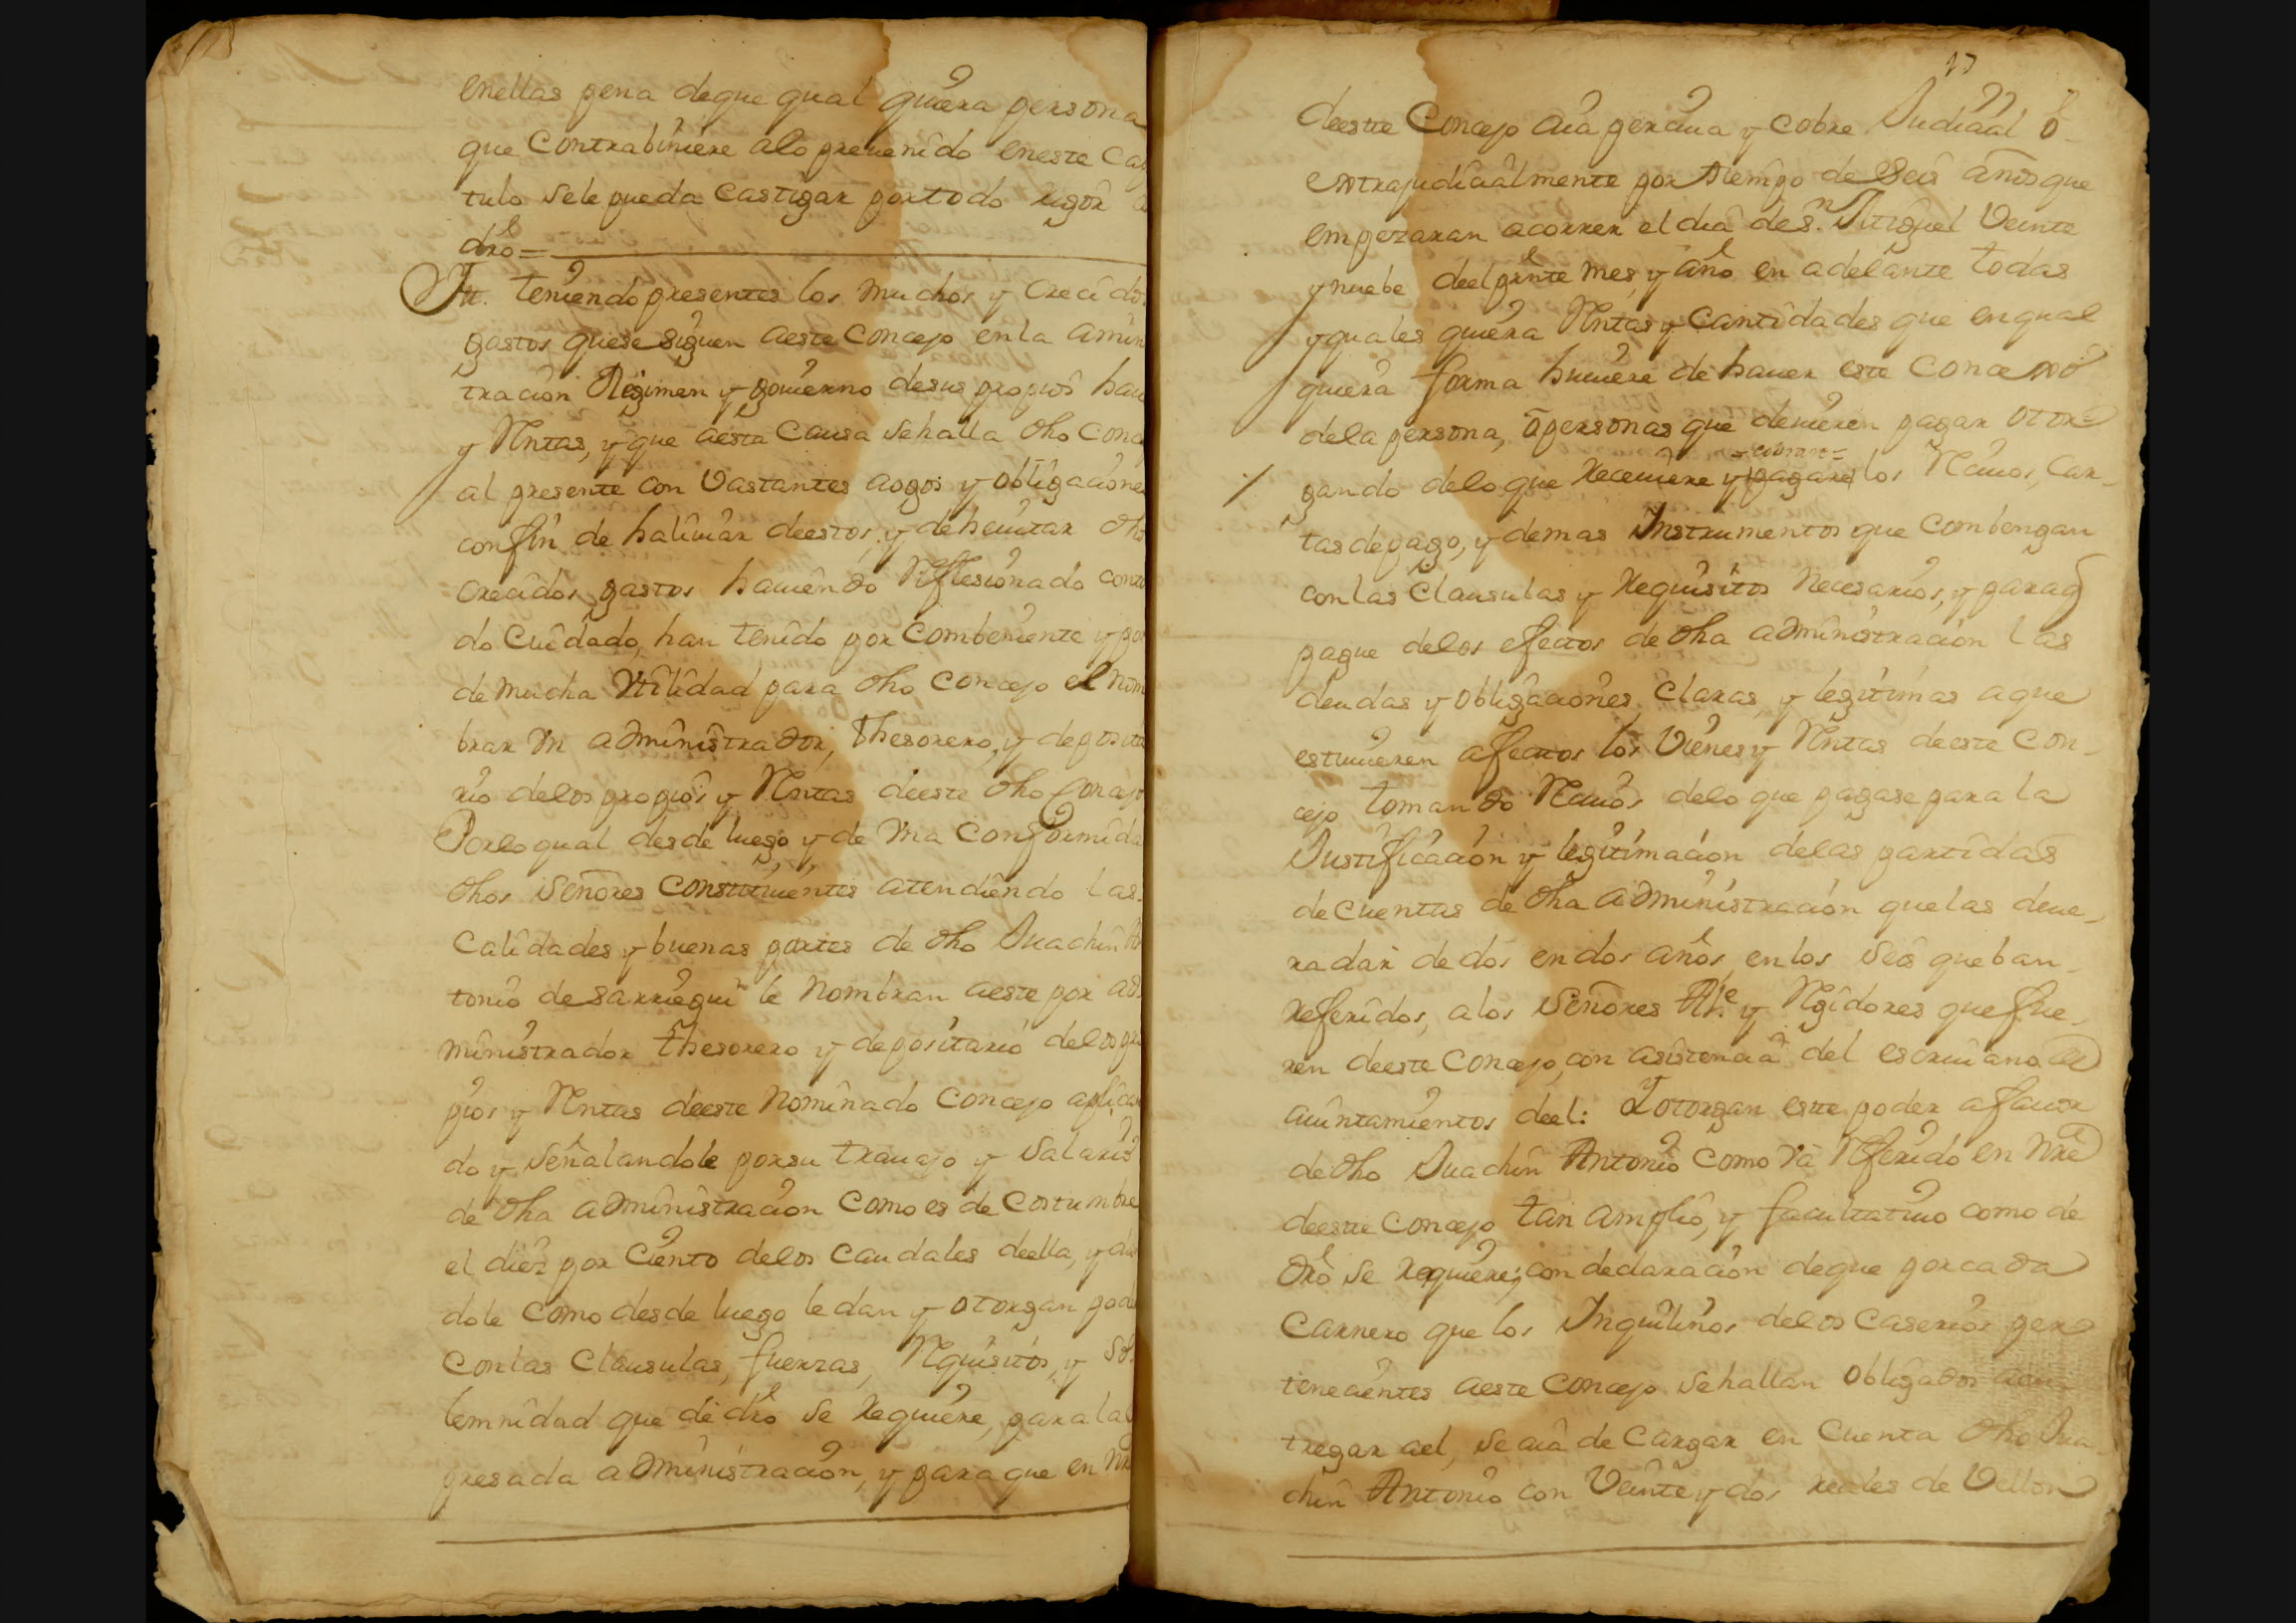 enellas pena deque qual quiera persona
que Contrabiniere alo prevenido eneste Cap
tulo sele pueda Castigar portodo rigor
dro=
It. teniendo presentes los muchos y Crecido
gastos quese siguen aeste Concejo enla Amin
tracion Regimen y govierno desus propios hav
y Rentas, y que aesta Causa sehalla dho Conc
al presente con Vastantes aogos y obligacione
confin de haliviar deestos, y dehevitar dho
crecidos gastos haviendo Reflesionado conto
do Cuidado, han tenido por Combeniente y por
de mucha Utilidad para dho Concejo el nom
brar Un administrador, Thesorero, y deposita
rio delos propios y Rentas deeste dho Concejo
Porlo qual desde luego y de Una Conformida
dhos Señores Constituientes atendiendo las
Calidades y buenas partes de dho Juachin An
tonio de Sarriegui le Nombran aeste por ad
ministrador Thesorero y depositario delos pro
pios y Rentas deeste Nominado Concejo aplica
do y Señalandole porsu travajo y Salario
de dha administracion Como es de Costumbre
el diez por Ciento delos Caudales deella, y da
dole Como desde luego le dan y otorgan pode
Conlas Clausulas, fuerzas, Requisitos, y So
lemnidad que de dro se requiere, para la
presada administracion, y para que en Nre
17
deeste Concejo aia perciva y Cobre Judicial ò
extrajudicialmente por tiempo de Seis años que
empezaran acorrer el dia de Sn. Miguel Veinte
y nuebe deel preste mes, y año en adelante todas
y quales quiera Rentas y Cantidades que en qual
quiera forma huviere de haver este Concexo
dela persona, ò personas que devieren pagar otor=
=cobrare=
gando delo que Receviere y pagare los Recivos, Car_
tas de pago, y demas Instrumentos que Combengan
con las Clausulas y Requisitos Necesarios, y paraq
pague delos efectos de dha administracion las
deudas y obligaciones Claras, y legitimas aque
estuvieren afectos los Vienes y Rentas deeste Con_
cejo tomando Recivos delo que pagase para la
Justificacion y legitimacion delas partidas
de Cuentas de dha administracion quelas deve_
ra dar de dos en dos años, en los Seis que ban_
referidos, alos Señores Alce. y Regidores que fue_
ren deeste Concejo, con asistencia del escrivano de
aiuntamientos deel: Y otorgan este poder afavor
de dho Juachin Antonio Como Và Referido en Nre
deeste Concejo tan amplio, y facultativo como de
dro se requiere; con declaracion deque por cada
Carnero que los Inquilinos delos Caserios per=
tenecientes aeste Concejo sehallan obligados aen
tregar ael, se aia de Cargar en Cuenta dho Jua_
chin Antonio con Veinte y dos reales de Vellon